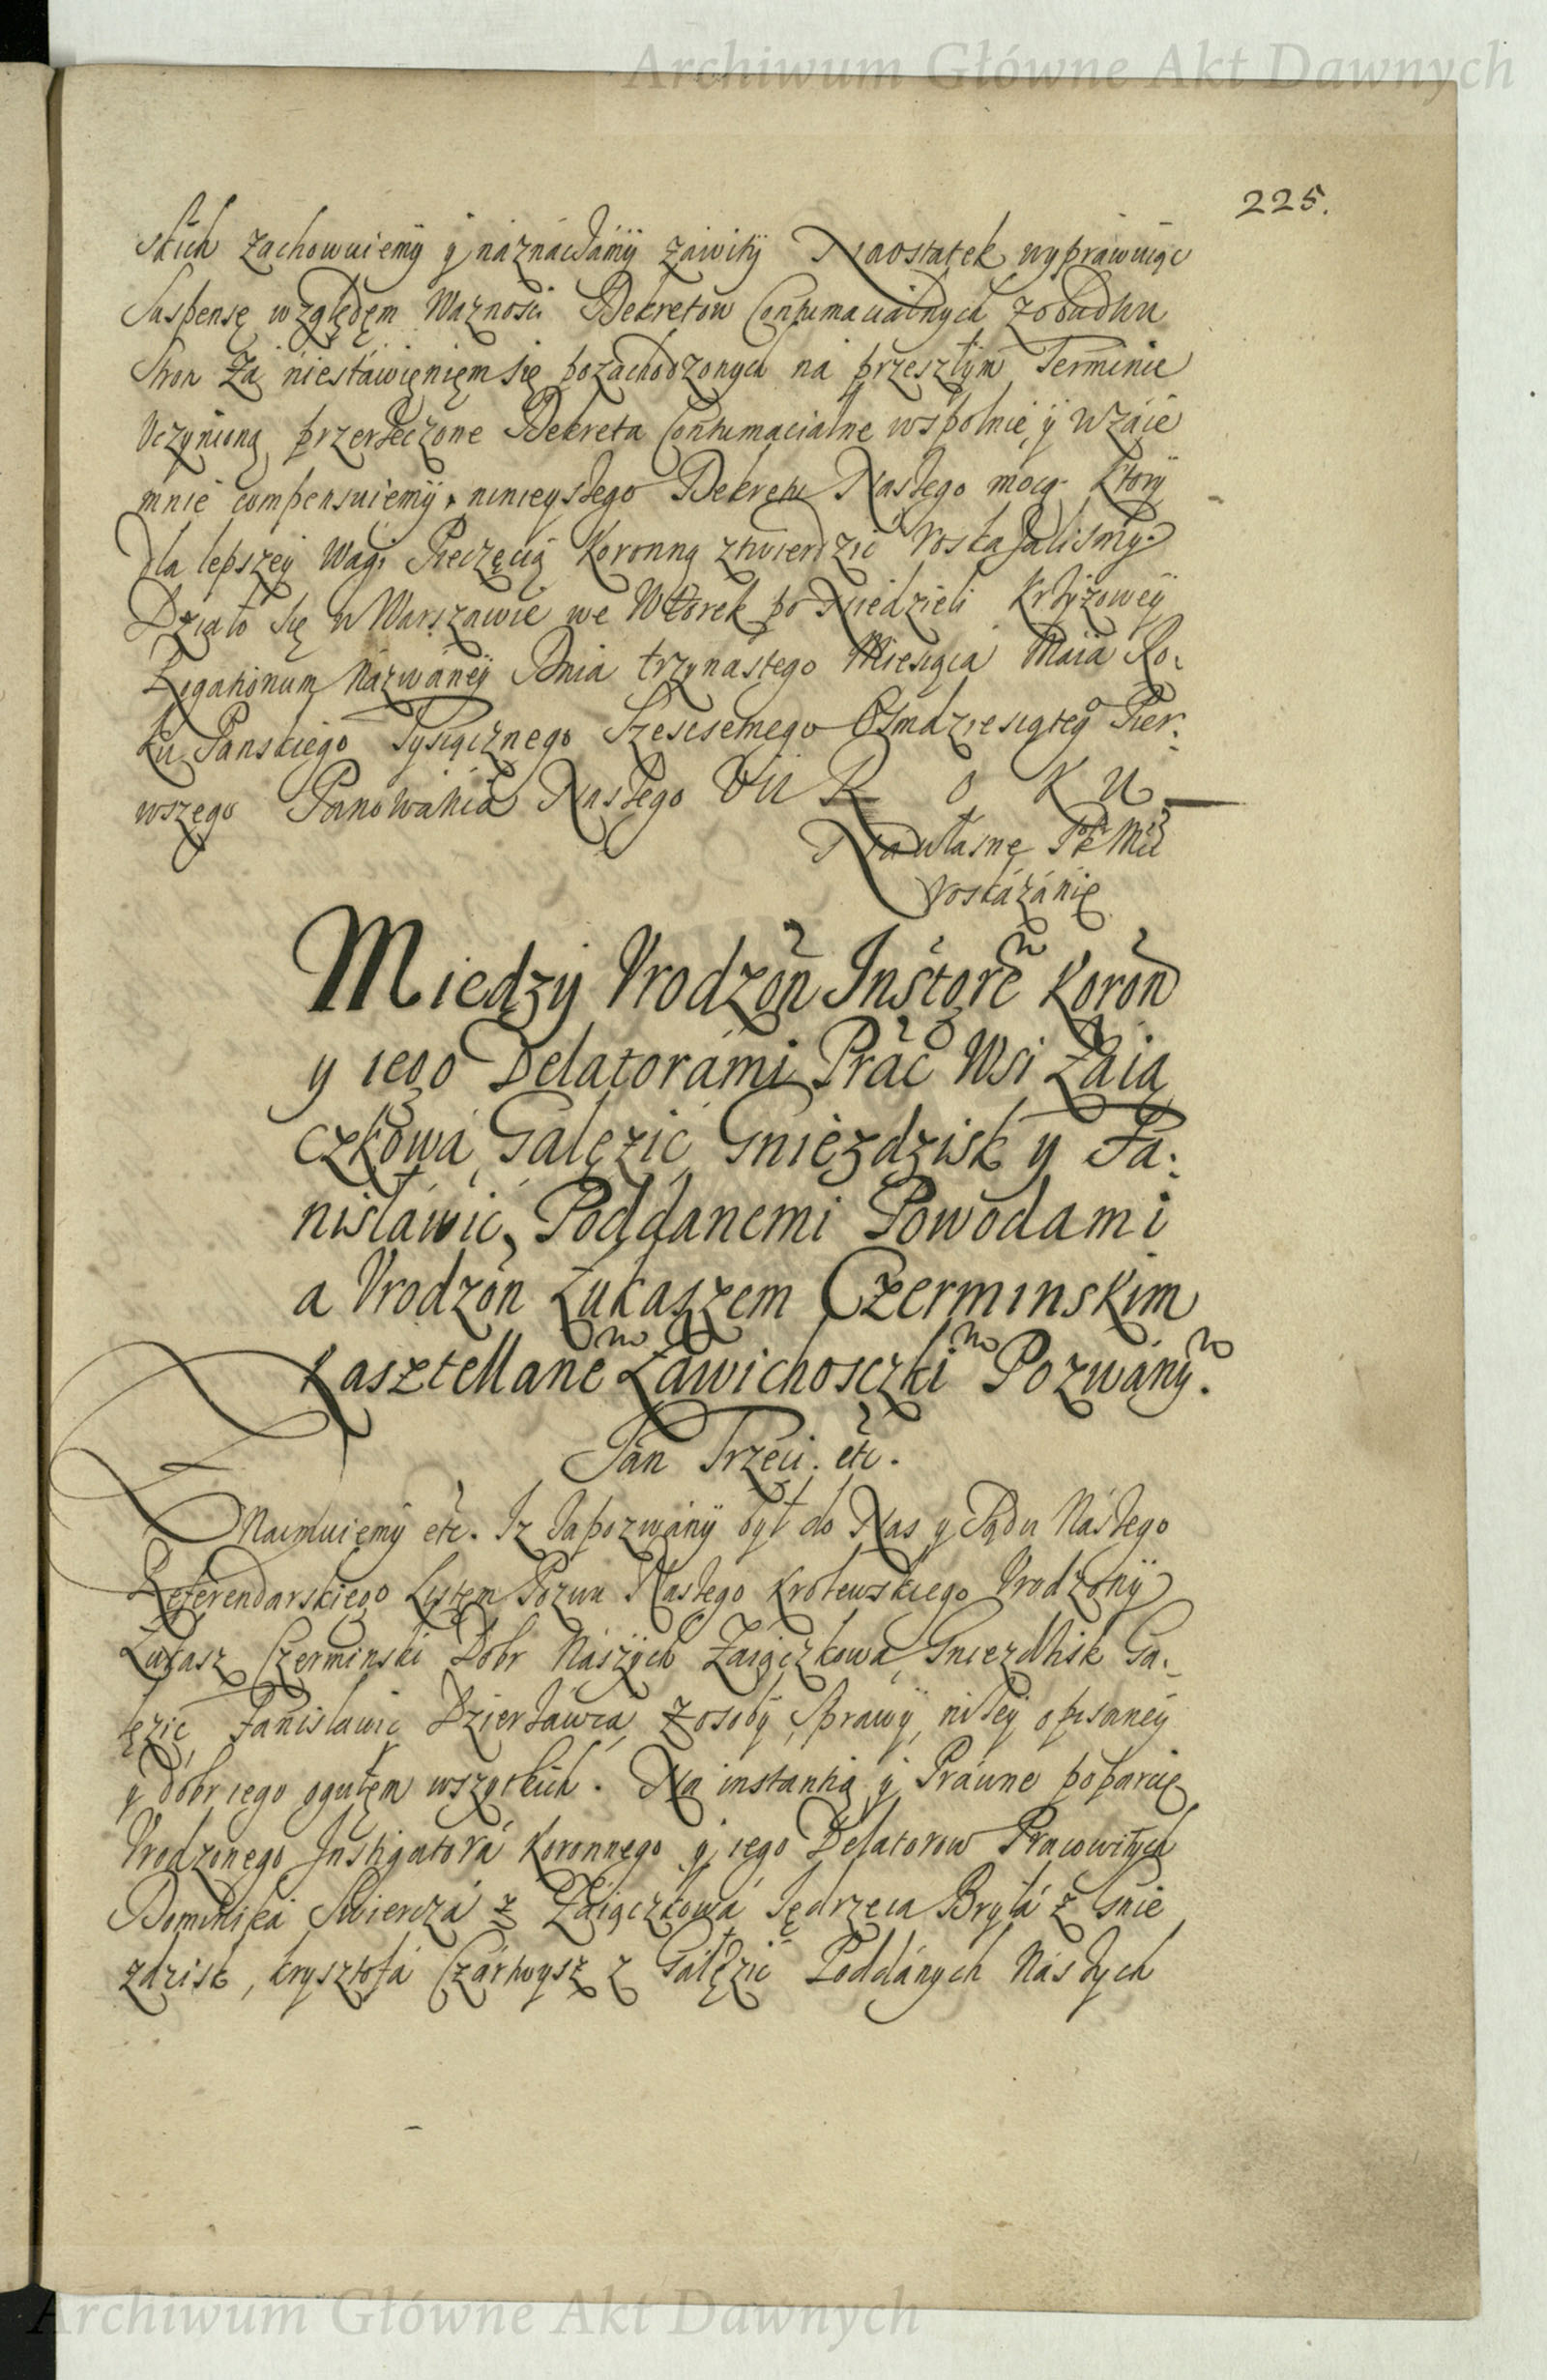 Archiwum Główne Akt Dawnych
225.
skich zachowuiemÿ ÿ náznáczámÿ záwitÿ Naostatek wyprawuiąc
Suspensę względęm Waznosci Dekretow Contumacialnych z obudwu
Stron Zá niestáwięnięm się pozachodzonych ná przeszłÿm Terminie
Vczynioną, przerzeczone Dekreta Contumacialne wspolnie ÿ wzaie
mnie compensuiemÿ, ninieyszego Dekretu Naszego mocą. Ktorÿ
dla lepszeÿ Wagi Pieczęcią Koronną ztwierdzic roskazalismy.
Działo się w Warszawie we Wtorek po Niedzieli Krzÿzoweÿ
Rogationum Názwáneÿ Dnia trzynastego Miesiąca Maia Ro-
ku Panskiego Tysiącznego Szescsetnego Osmdziesiątego Pier-
wszego Panowánia Naszego VII R o k u
Na własne P K Mci
roskázánie
Miedzy Vrodzon Instore Koron
y iego Delatorámi Prác Wsi Záią
czkowá, Gałęzic, Gniezdzisk y Fa-
nisławic, Poddanemi Powodami
a Vrodzon Łukaszem Czerminskim
Kasztellane Záwichosczki Pozwány.
Jan Trzeci. etc.
Znaimuięmÿ etc. Iz Zapozwánÿ był do Nas y Sądu Nászego
Referendarskiego Listem Pozwu Naszego Krolewskiego Vrodzonÿ
Łukasz Czerminski Dobr Nászÿch Záiączkowa, Gniezdzisk Ga-
łęzic, Fanisławic Dzierzáwca, z osobÿ, sprawÿ, nizeÿ opisaneÿ
y dobr iego ogułęm wszytkich. Na instantią ÿ Práwne poparcie
Vrodzonego Instigatorá Koronnego ÿ iego Delatorow Pracowitych
Dominiká Swierczá z Záiączkowá Jędrzeia Bryłá z Gnie
zdzisk, Krysztofá Czárnysz z Gáłęzic Poddánych Nászych
Archiwum Główne Akt Dawnych